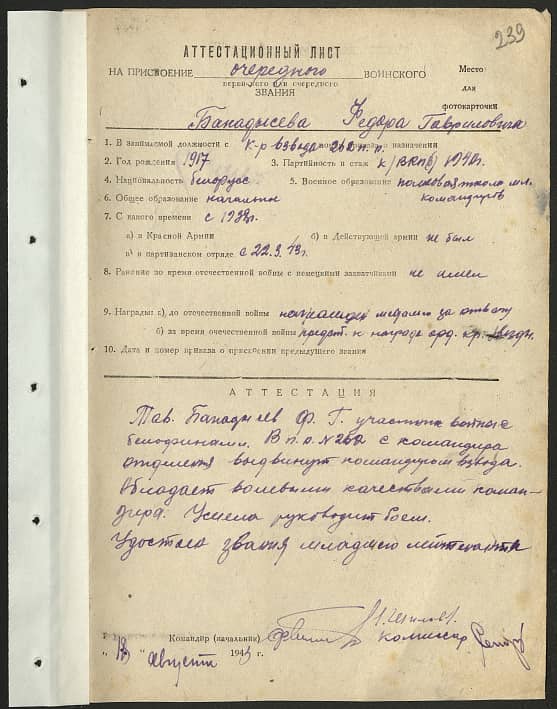 239
АТТЕСТАЦИОННЫЙ ЛИСТ
НА ПРИСВОЕНИЕ очередного ВОИНСКОГО
первичного или очередного
ЗВАНИЯ
Место
для
фотокарточки
Банадысева Федора Гавриловича
1. В занимаемой должности с к-р взвода 262 п.о. назначении
2. Год рождения 1917 3. Партийность и стаж к/ВКПб/ 1940г.
4. Национальность белорус 5. Военное образование полковая школа мл.
командиров
6. Общее образование начальн
7. С какого времени с 1938г.
а) в Красной Армии б) в Действующей армии не был
в) в партизанском отряде с 22.3.43г.
8. Ранение во время отечественной войны с немецкими захватчиками не имеет
9. Награды: а) до отечественной войны медалью за отвагу
б) за время отечественной войны предст. к награде орд. кр. звезды
10. Дата и номер приказа о присвоении предыдущего звания
АТТЕСТАЦИЯ
Тов. Банадысев Ф. Г. участник войны с
белофинами. В п.о. №262 с командира
отделения выдвинут командиром взвода.
Обладает волевыми качествами коман-
дира. Умело руководит боем.
Удостоен звания младшего лейтенанта
Командир (начальник)
комиссар
" 18 " августа 1943 г.